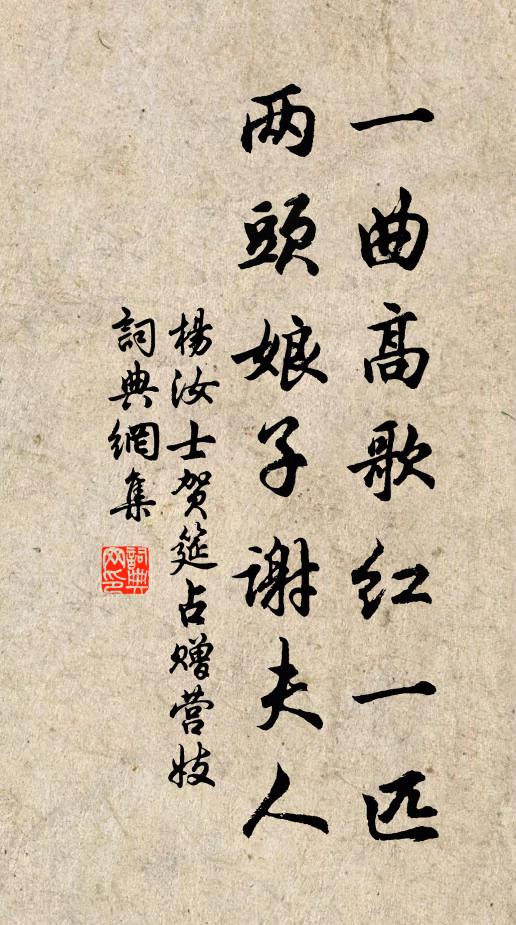 一曲高歌红一匹
两頭娘子谢夫人
楊汝士贺筵占赠营妓
詞典網集
詞典網印